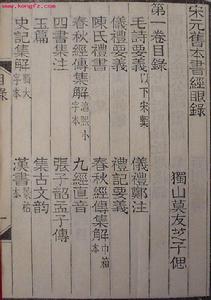 www.kongfz.cn
宋元舊本書經眼錄
獨山莫友芝子偲
第一卷目錄
毛詩要義 以下宋槧 儀禮鄭注
儀禮要義 禮記要義
陳氏禮書 春秋經傳集解 巾箱本
春秋經傳集解 淳熙小字本 九經直音
四書集注 張子韶孟子傳
玉篇 集古文韻
史記集解 蜀大字本 漢書 景祐本
目錄